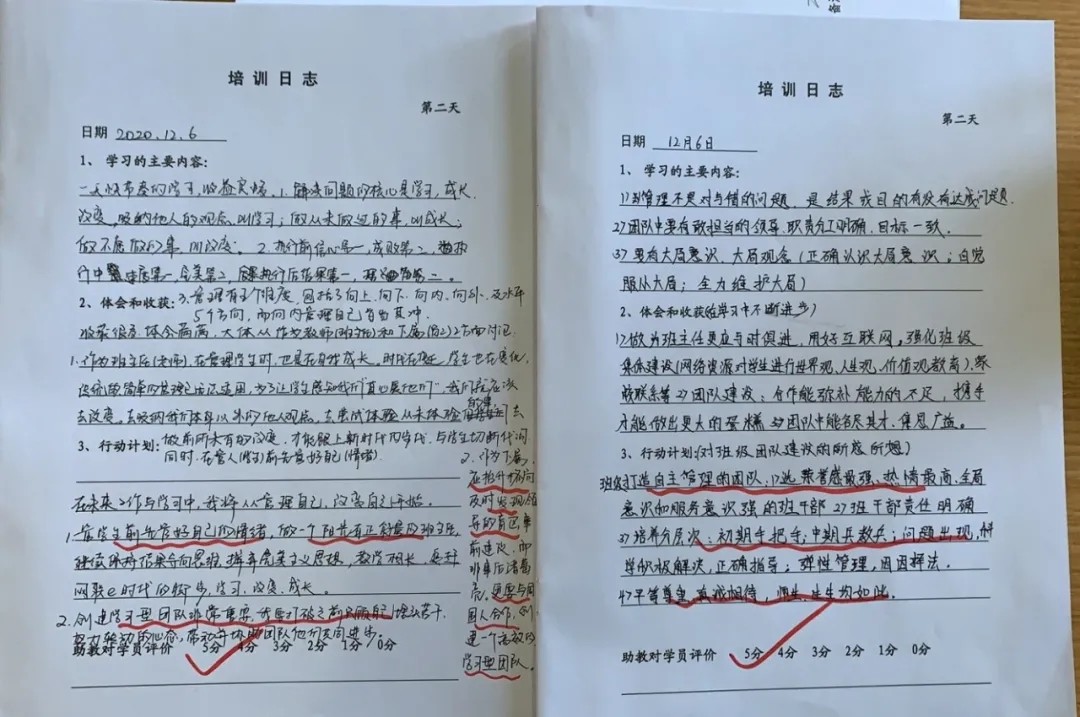 培训日志
第二天
日期 2020.12.6
1、学习的主要内容:
一天快节奏的学习,收益实惠。1.解决问题的核心是学习,成长
改变,吸纳他人的观念,叫学习;做从未做过的事,叫成长;
做不愿做的事,叫改变。2.执行前信心第一,成败第二,
行中速度第一,完美第二,执行后结果第一,第二。
2、体会和收获:3.管理有五个维度,包括了向上.向下.向内.向外.及水平
5个方向,而向内管理自己
收获很多 大体从作为教师(班主任)和下属2方面讨论
1.作为班主任(老师),在管理学生时,也是在自我成长。时代在变迁,学生也在变化,
传统简单的管理已经不适用,为了让学生感知我们"真心爱他们",我们应在
去改变。去吸纳我们本身以外的他人观念,去尝试体验从未体验
3、行动计划:做前所未有的改变,才能跟上新时代的步伐,与学生切断代沟
同时.在管人(学生)前先管好自己(情绪)
在未来工作与学习中,我将从管理自己,改变自己开始。
1.管学生前先管好自己的情绪,做一个阳光有正能量的班主任,
继续保持结果导向思维,摒弃完美主义思想,教学相长,跟
网教e时代的脚步,学习、改变、成长。
2.创建学习型团队非常重要,我要打破之前只顾自己埋头苦干,
努力 的心态,带动并协助团队他们共同进步
2.作为下属,
在抬升方向
及时发现领
导的盲区事
前建议,而
非事后诸葛
亮,更要与同
团人合作,创
建一个高效的
学习型团队。
助教对学员评价 5分 4分 3分 2分 1分 0分
培训日志
第二天
日期 12月6日
1、学习的主要内容:
1)管理不是对与错的问题,是结果或目的有没有达成问题.
2)团队中要有敢担当的领导,职责分工明确,目标一致.
3)要有大局意识、大局观念(正确认识大局意识;自觉
服从大局;全力维护大局)
2、体会和收获(在学习中不断进步)
1)做为班主任更应与时俱进,用好互联网。强化班级
集体建设(网络资源对学生进行世界观、人生观、价值观教育),家
校联系等 2)团队建设:合作能弥补能力的不足,携手
才能做出更大的蛋糕 3)团队中能各尽其才、集思广益。
3、行动计划(对班级团队建设的所感所想)
班级打造自主管理的团队:1)选荣誉感最强、热情最高、全局
意识和服务意识强的班干部 2)班干部责任明确
3)培养分层次:初期手把手;中期兵教兵;问题出现,科
学积极解决,正确指导;弹性管理,因困择法.
4)平等尊重,真诚相待,师生、生生均如此.
助教对学员评价 5分 4分 3分 2分 1分 0分